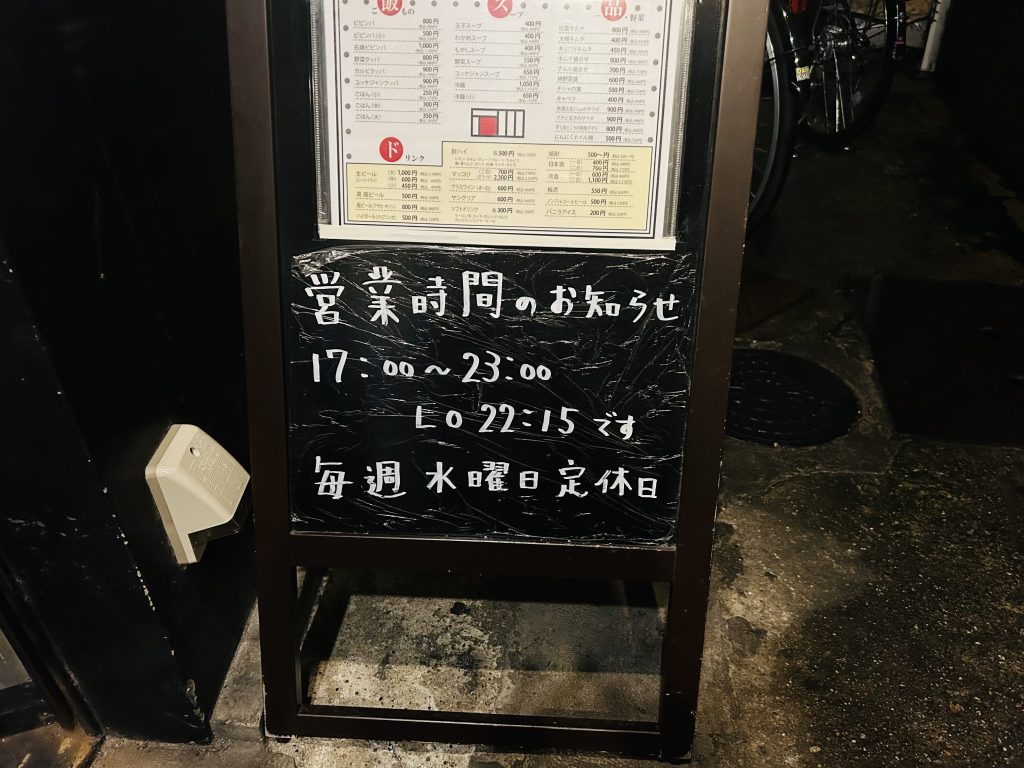 ご飯もの
ビビンバ 800円
ビビンバ(小) 500円
石焼ビビンバ 1,000円
野菜クッパ 800円
カルビクッパ 900円
ユッケジャンクッパ 900円
ごはん(小) 250円
ごはん(中) 300円
ごはん(大) 350円
スープ
玉子スープ 400円
わかめスープ 400円
もやしスープ 400円
野菜スープ 550円
ユッケジャンスープ 650円
冷麺 1,050円
冷麺(小) 650円
品・野菜
白菜キムチ 400円
大根キムチ 400円
キュウリキムチ 450円
キムチ盛合せ 800円
ナムル盛合せ 700円
焼野菜盛 600円
チシャの葉 500円
キャベツ 400円
900円
900円
800円
にんにくホイル焼 500円
ドリンク
生ビール (大) 1,000円
(中) 600円
(小) 450円
瓶ビール 500円
800円
500円
酎ハイ 各500円
マッコリ 700円
2,300円
グラスワイン(赤・白) 600円
サングリア 600円
ソフトドリンク 各300円
焼酎 500円〜
日本酒 (一合) 400円
(二合) 700円
冷酒 600円
1,100円
梅酒 550円
ノンアルコールビール 500円
バニラアイス 200円
営業時間のお知らせ
17:00〜23:00
Lo 22:15です
毎週水曜日定休日